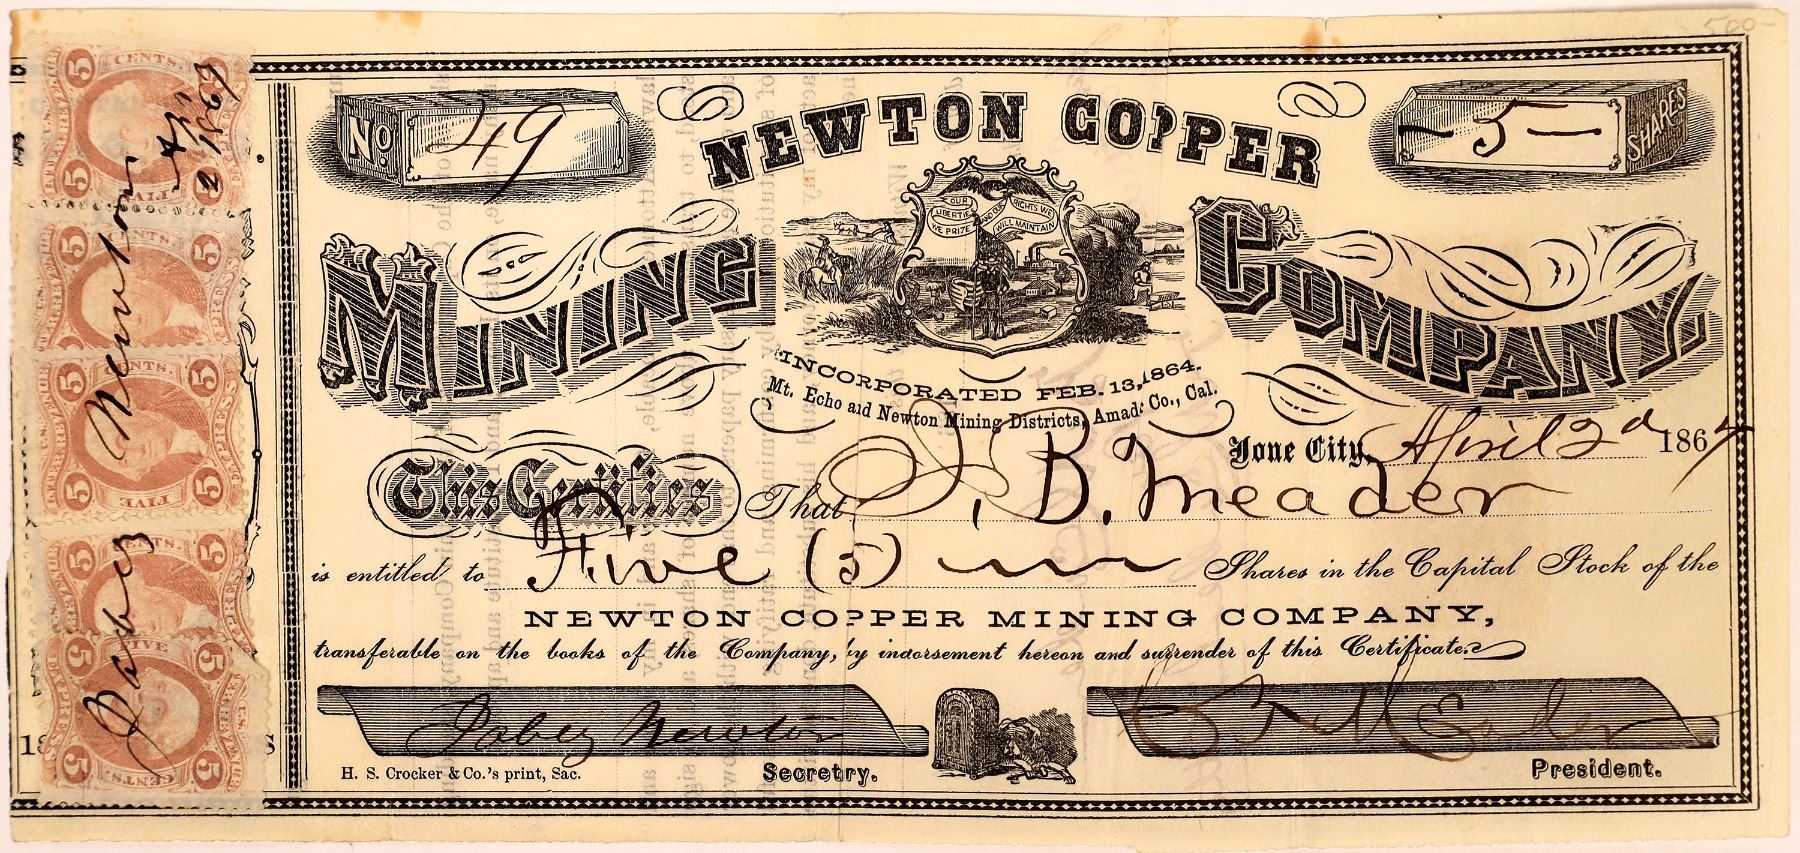 500-
No. 49
NEWTON COPPER
-5- SHARES
MINING COMPANY.
OUR LIBERTIES WE PRIZE AND OUR RIGHTS WE WILL MAINTAIN
INCORPORATED FEB. 13, 1864.
Mt. Echo and Newton Mining Districts, Amad: Co., Cal.
Ione City, April 2d 1864
This Certifies That J. B. Meader
is entitled to Five (5) Shares in the Capital Stock of the
NEWTON COPPER MINING COMPANY,
transferable on the books of the Company, by indorsement hereon and surrender of this Certificate.
Jabez Newton
H. S. Crocker & Co.'s print, Sac.
Secretry.
President.
Jabez Newton Apl 2 1864
5 CENTS. 5
U.S. INTER. REVENUE EXPRESS
5 FIVE 5